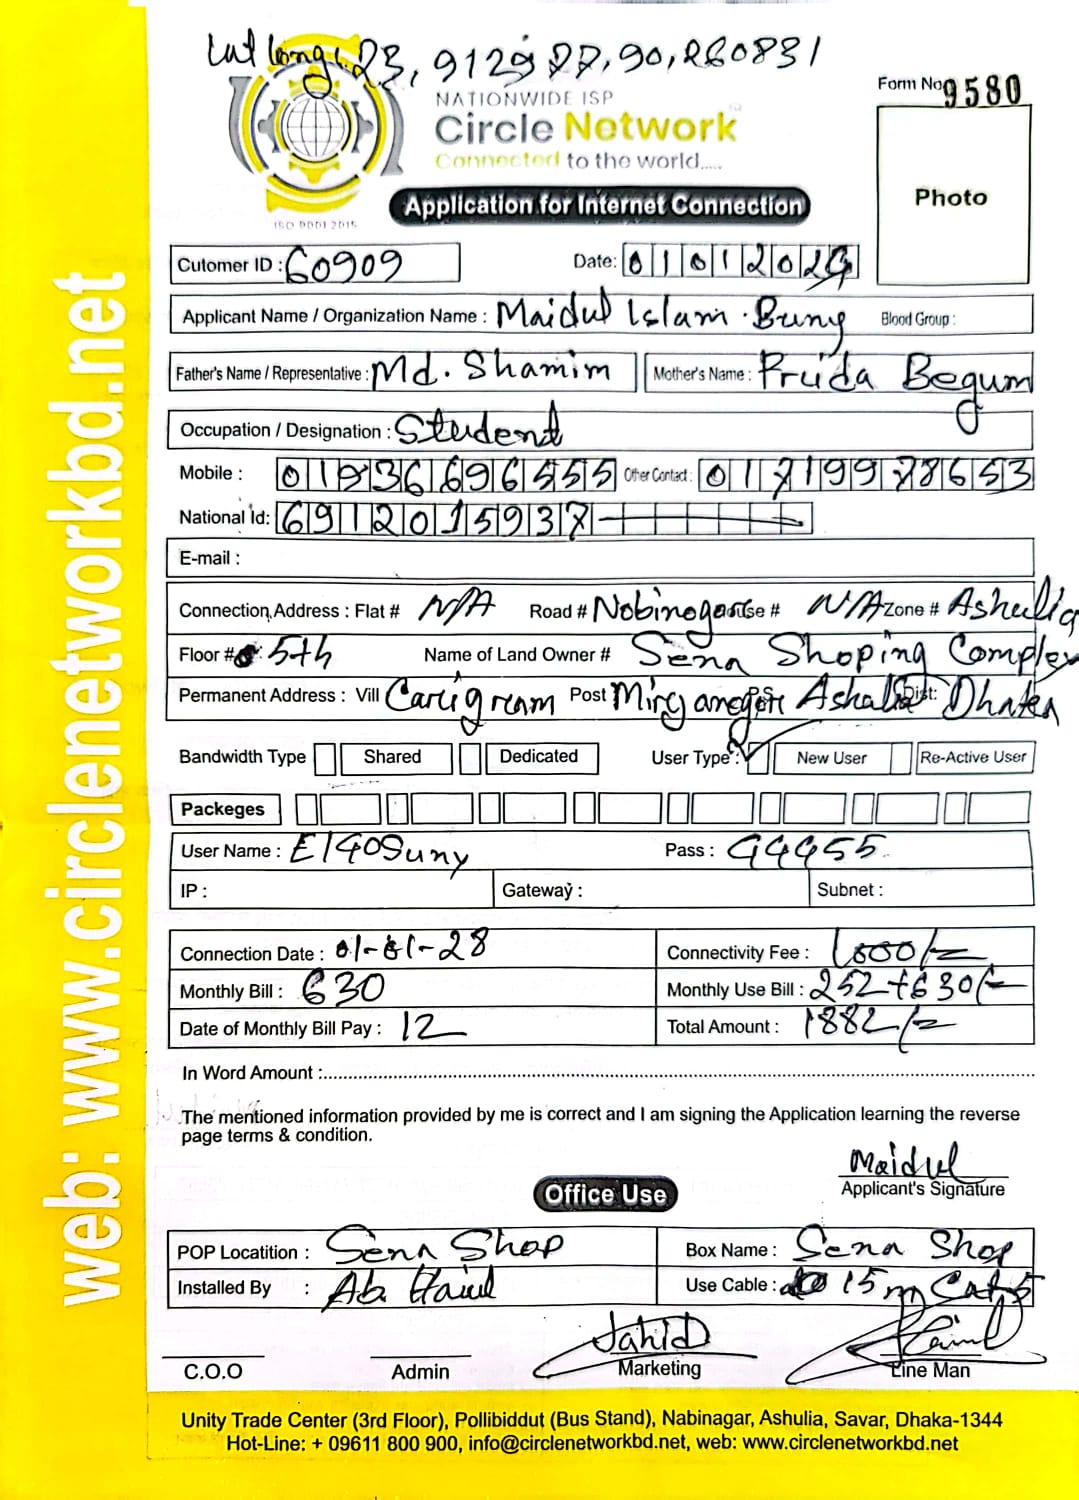 Lat long: 23, 9129 27, 90, 260831
NATIONWIDE ISP
Circle Network
Connected to the world.....
ISO 9001 2015
Form No 9580
Photo
Application for Internet Connection
Cutomer ID : 60909 Date: 01012024
Applicant Name / Organization Name : Maidul Islam Blood Group :
Father's Name / Representative : Md. Shamim Mother's Name : Prida Begum
Occupation / Designation : Student
Mobile : 01936696555 Other Contact : 01719978653
National Id: 6912015937
E-mail :
Connection Address : Flat # N/A Road # Nobinogar House # N/A Zone # Ashulia
Floor # 5th Name of Land Owner # Sena Shoping Complex
Permanent Address : Vill Carigram Post Dist: Dhaka
Bandwidth Type Shared Dedicated User Type : New User Re-Active User
Packeges
User Name : E140Suny Pass : 44455
IP : Gateway : Subnet :
Connection Date : 01-01-28 Connectivity Fee : 1000/=
Monthly Bill : 630 Monthly Use Bill : 252+630/=
Date of Monthly Bill Pay : 12 Total Amount : 1882/=
In Word Amount :
The mentioned information provided by me is correct and I am signing the Application learning the reverse
page terms & condition.
Maidul
Applicant's Signature
Office Use
POP Locatition : Sena Shop Box Name : Sena Shop
Installed By : Use Cable : 15m Cat5
Jahid
C.O.O Admin Marketing Line Man
Unity Trade Center (3rd Floor), Pollibiddut (Bus Stand), Nabinagar, Ashulia, Savar, Dhaka-1344
Hot-Line: + 09611 800 900, info@circlenetworkbd.net, web: www.circlenetworkbd.net
web: www.circlenetworkbd.net